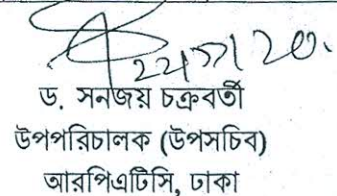 ড. সনজয় চক্রবর্তী
উপপরিচালক (উপসচিব)
আরপিএটিসি, ঢাকা